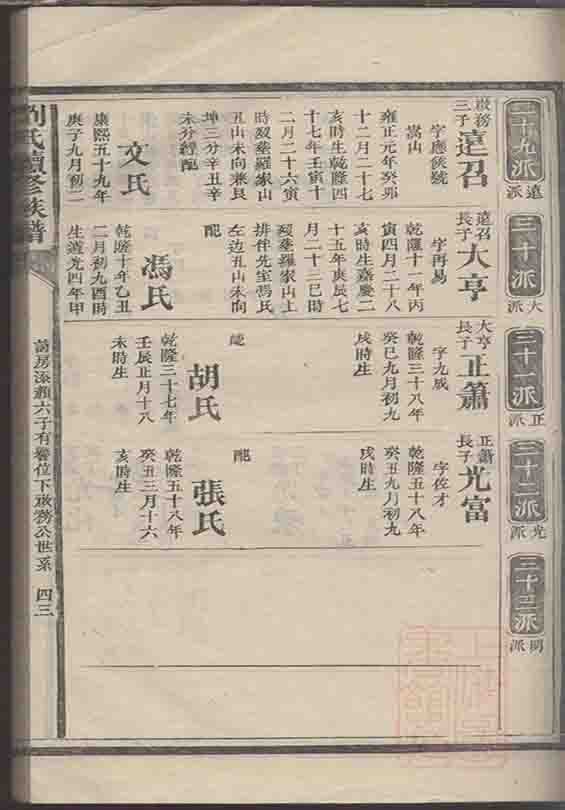 二十九派
遠派
三十派
大派
三十一派
正派
三十二派
光派
三十三派
明派
啟務
三子
遠召
字應候號
嵩山
雍正元年癸卯
十二月二十七
亥時生乾隆四
十七年壬寅十
二月二十六寅
時歿塟羅家山
丑山未向兼艮
坤三分辛丑辛
未分經配
文氏
康熙五十九年
庚子九月初二
遠召
長子
大亨
字再易
乾隆十一年丙
寅四月二十八
亥時生嘉慶二
十五年庚辰七
月二十三巳時
歿塟羅家山上
排伴先室馮氏
左边丑山未向
配
馮氏
乾隆十年乙丑
二月初九酉時
生道光四年甲
大亨
長子
正簫
字九成
乾隆三十八年
癸巳九月初九
戌時生
配
胡氏
乾隆三十七年
壬辰正月十八
未時生
正簫
長子
光富
字佐才
乾隆五十八年
癸丑九月初九
戌時生
配
張氏
乾隆五十八年
癸丑三月十六
亥時生
劉氏續修族譜
六子有譽位下啟務公世系
四三